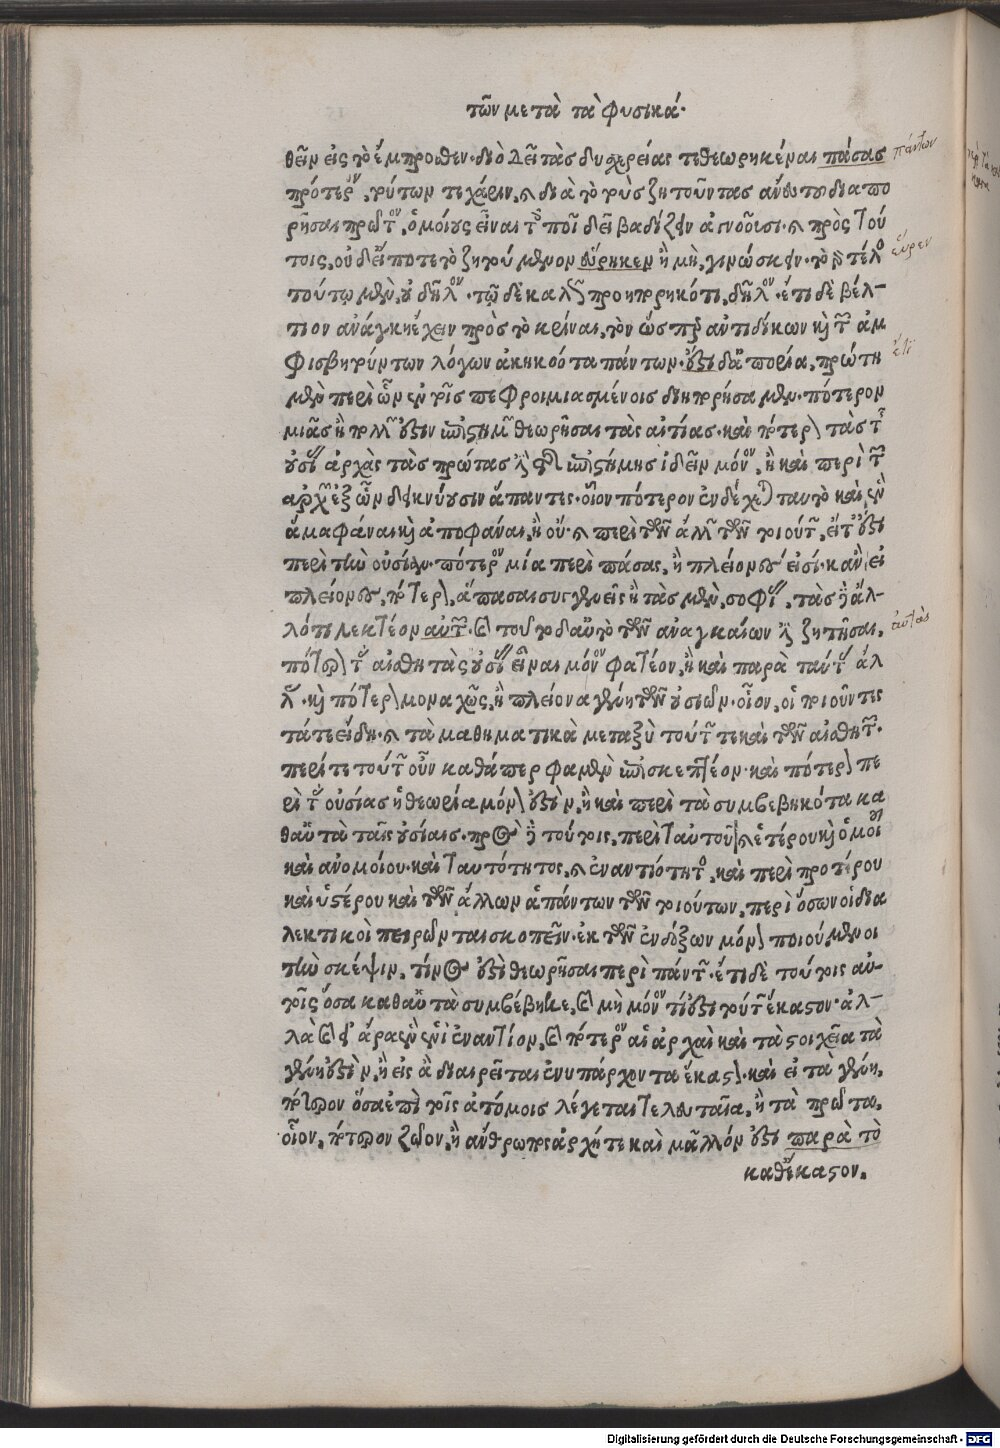 τῶν μετὰ τὰ φυσικά·
θεῖν εἰς τὸ ἔμπροσθεν· διὸ δεῖ τὰς δυσχερείας τεθεωρηκέναι πάσας
πρότερον, τούτων τε χάριν, καὶ διὰ τὸ τοὺς ζητοῦντας ἄνευ τοῦ διαπο
ρῆσαι πρῶτον, ὁμοίους εἶναι τοῖς ποῖ δεῖ βαδίζειν ἀγνοοῦσι· καὶ πρὸς τού
τοις, οὐδ' εἴ ποτε τὸ ζητούμενον εὕρηκεν ἢ μὴ, γινώσκειν· τὸ γὰρ τέλος
τούτῳ μὲν, οὐ δῆλον· τῷ δὲ καλῶς προηπορηκότι, δῆλον· ἔτι δὲ βέλ-
τιον ἀνάγκη ἔχειν πρὸς τὸ κρῖναι, τὸν ὥσπερ ἀντιδίκων καὶ τῶν ἀμ
φισβητούντων λόγων ἀκηκοότα πάντων· ἔστι δ' ἀπορία, πρώτη
μὲν περὶ ὧν ἐν τοῖς πεφροιμιασμένοις διηπορήσαμεν· πότερον
μιᾶς ἢ πολλῶν ἐστὶν ἐπιστημῶν θεωρῆσαι τὰς αἰτίας· καὶ πότερον τὰς τῆς
οὐσίας ἀρχὰς τὰς πρώτας ἐστὶ τῆς ἐπιστήμης ἰδεῖν μόνον, ἢ καὶ περὶ τῶν
ἀρχῶν ἐξ ὧν δεικνύουσιν ἅπαντες· οἷον πότερον ἐνδέχεται ταυτὸ καὶ ἓν
ἅμα φάναι καὶ ἀποφάναι, ἢ οὔ· καὶ περὶ τῶν ἄλλων τῶν τοιούτων, εἴτ' ἔστι
περὶ τὴν οὐσίαν· πότερον μία περὶ πάσας, ἢ πλείονες εἰσί· κἂν εἰ
πλείονες, πότερον ἅπασαι συγγενεῖς ἢ τὰς μὲν, σοφίας, τὰς δὲ ἄλ-
λό τι λεκτέον αὐτῶν· καὶ τοῦτο δ' αὐτὸ τῶν ἀναγκαίων ἐστὶ ζητῆσαι,
πότερον τὰς αἰσθητὰς οὐσίας εἶναι μόνον φατέον, ἢ καὶ παρὰ ταύτας ἄλ
λας· καὶ πότερον μοναχῶς, ἢ πλείονα γένη τῶν οὐσιῶν· οἷον, οἱ ποιοῦντες
τά τε εἴδη, καὶ τὰ μαθηματικὰ μεταξὺ τούτων τε καὶ τῶν αἰσθητῶν·
περί τε τούτων οὖν καθάπερ φαμὲν ἐπισκεπτέον· καὶ πότερον πε
ρὶ τὰς οὐσίας ἡ θεωρία μόνον ἐστὶν, ἢ καὶ περὶ τὰ συμβεβηκότα κα
θ' αὑτὰ ταῖς οὐσίαις· πρὸς δὲ τούτοις, περὶ ταυτοῦ καὶ ἑτέρου καὶ ὁμοίου
καὶ ἀνομοίου· καὶ ταυτότητος, καὶ ἐναντιότητος, καὶ περὶ προτέρου
καὶ ὑστέρου καὶ τῶν ἄλλων ἁπάντων τῶν τοιούτων, περὶ ὅσων οἱ δια
λεκτικοὶ πειρῶνται σκοπεῖν· ἐκ τῶν ἐνδόξων μόνον ποιούμενοι
τὴν σκέψιν, τίνος ἐστὶ θεωρῆσαι περὶ πάντων· ἔτι δὲ τούτοις αὐ-
τοῖς ὅσα καθ' αὑτὰ συμβέβηκε, καὶ μὴ μόνον τί ἐστι τούτων ἕκαστον· ἀλ-
λὰ καὶ εἰ ἄρα ἓν ἑνὶ ἐναντίον, καὶ πότερον αἱ ἀρχαὶ καὶ τὰ στοιχεῖα τὰ
γένη ἐστὶν, ἢ εἰς ἃ διαιρεῖται ἐνυπάρχοντα ἕκαστον· καὶ εἰ τὰ γένη,
πότερον ὅσα ἐπὶ τοῖς ἀτόμοις λέγεται τελευταῖα, ἢ τὰ πρῶτα,
οἷον, πότερον ζῷον, ἢ ἄνθρωπος ἀρχή τε καὶ μᾶλλόν ἐστι παρὰ τὸ
καθ' ἕκαστον.
πάντων
εὗρεν
ἔτι
αὐτὰς
Digitalisierung gefördert durch die Deutsche Forschungsgemeinschaft - DFG